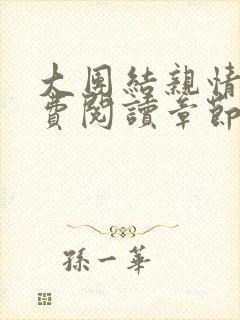 大團結親情
費閱讀章節
孫一華